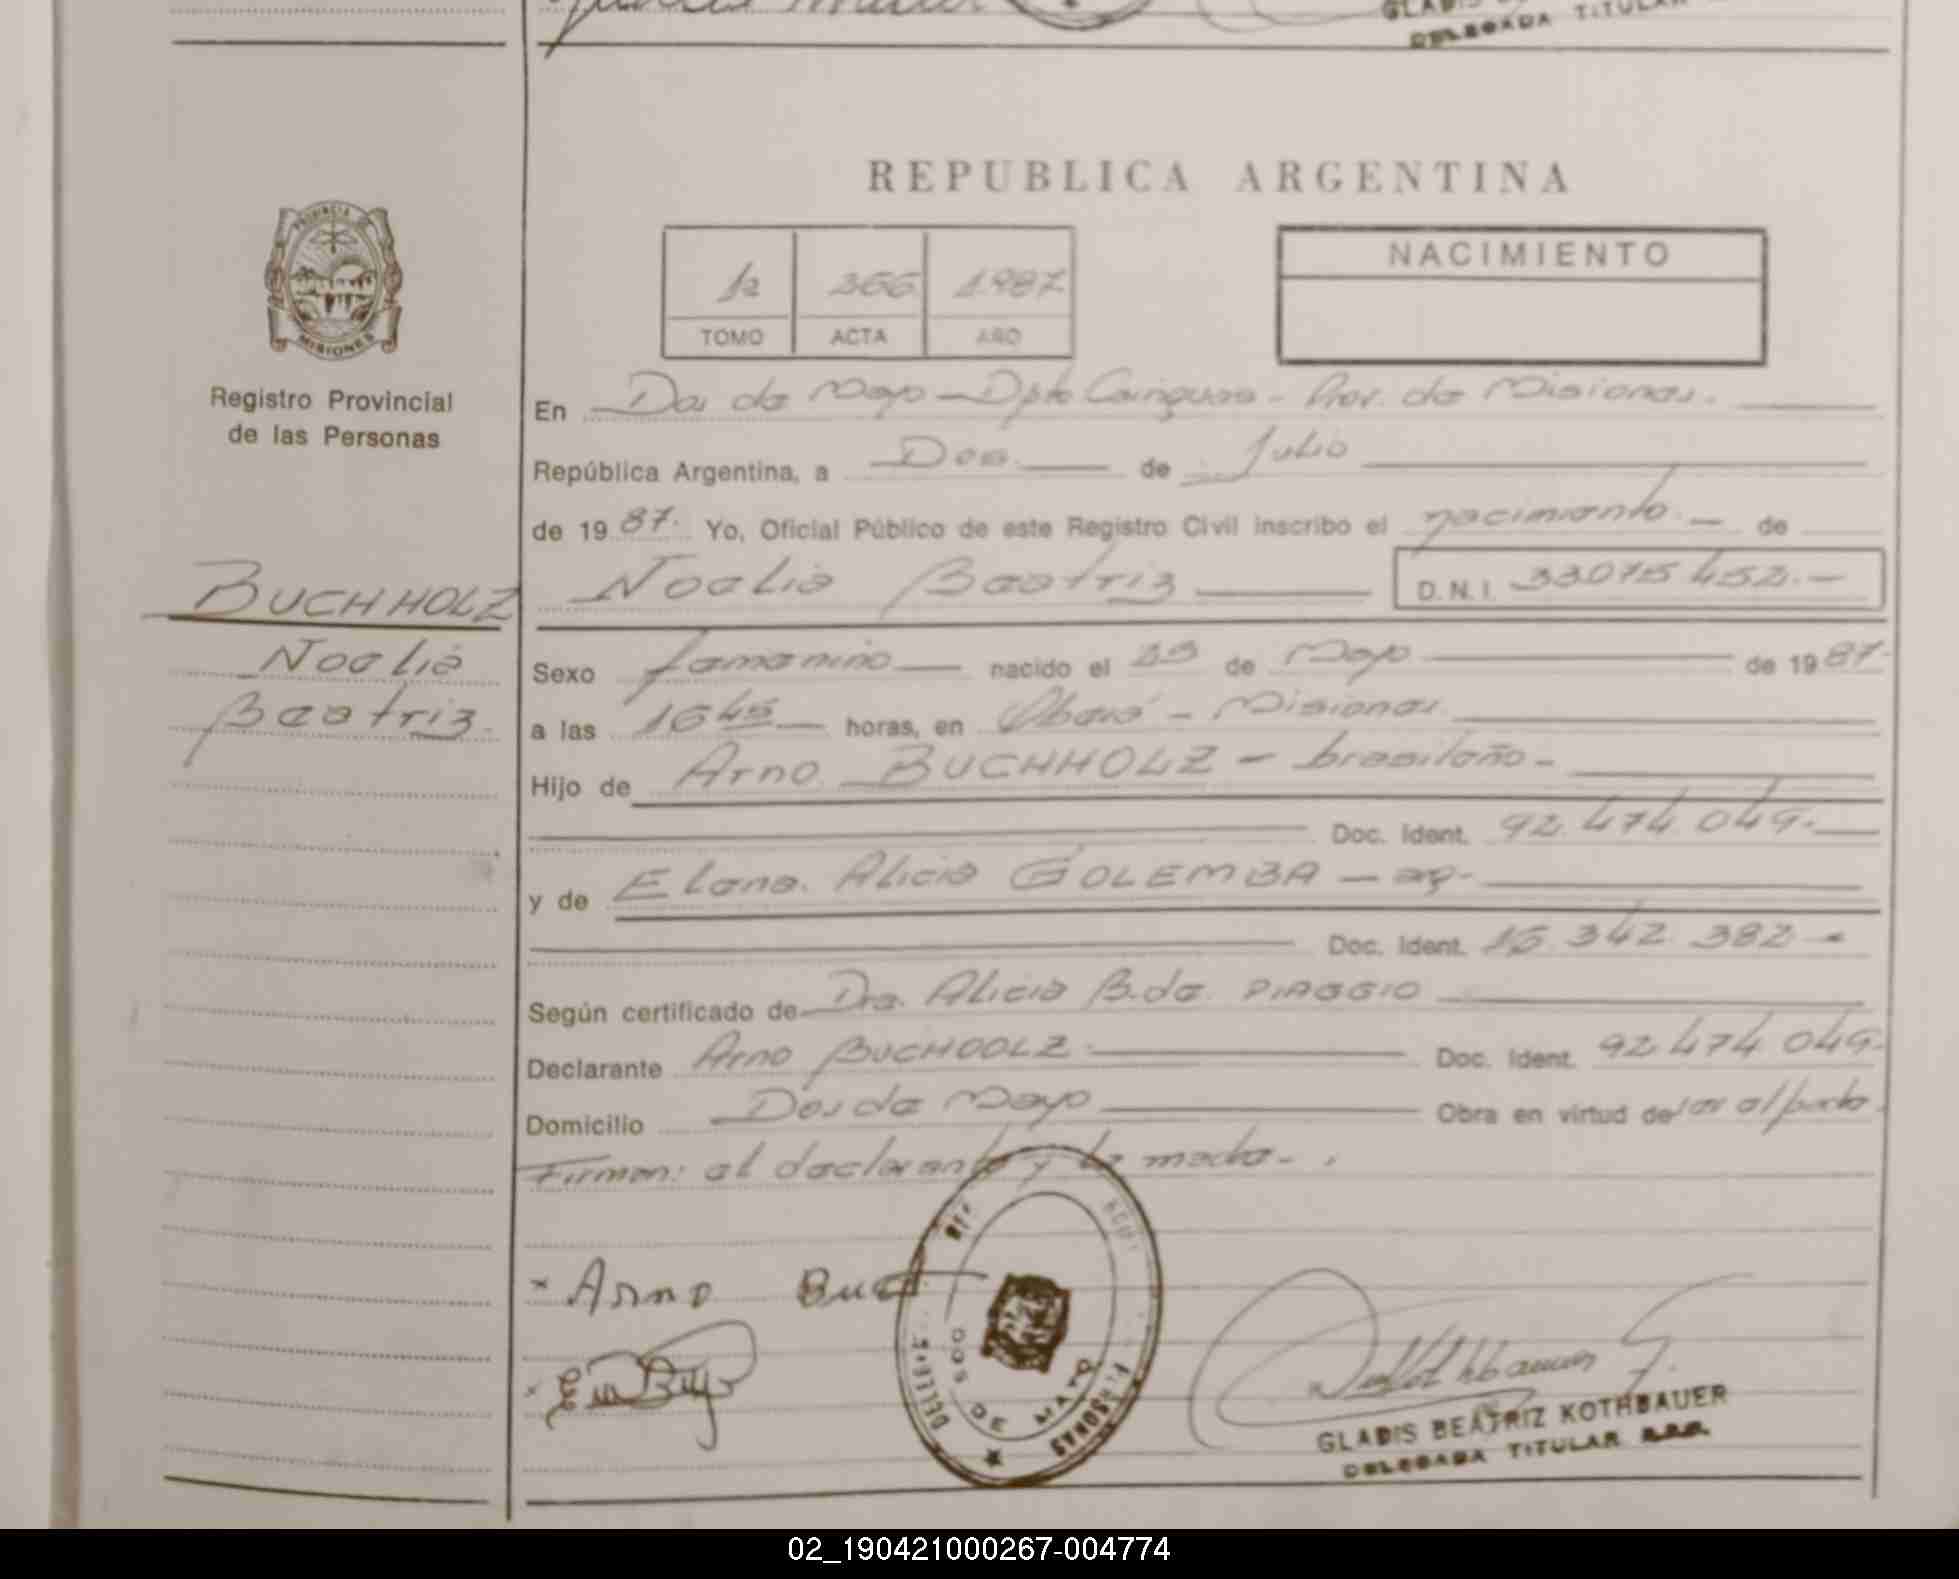 GLADIS
DELEGADA TITULAR
REPUBLICA ARGENTINA
PROVINCIA DE
MISIONES
Registro Provincial
de las Personas
12 366 1.987
TOMO ACTA AÑO
NACIMIENTO
En Dos de Mayo - Dpto Cainguas - Prov. de Misiones.
República Argentina, a Dos. de Julio
de 19 87. Yo, Oficial Público de este Registro Civil inscribo el nacimiento. de
BUCHHOLZ
Noelia Beatriz D.N.I. 33.075.452.-
Noelia
Beatriz.
Sexo femenino nacido el de Mayo de 19 87-
a las 16 45 horas, en Oberá - Misiones.
Hijo de Arno BUCHHOLZ - brasileño-
Doc. Ident. 92.474.049.-
y de Elena Alicia GOLEMBA - arg-
Doc. Ident. 16.342.382-
Según certificado de Dra. Alicia B. de PIAGGIO
Declarante Arno BUCHOOLZ. Doc. Ident. 92.474.049-
Domicilio Dos de Mayo Obra en virtud de
Firman: el declarante y la madre-.
x Arno Buc
x
DOS DE MAYO
GLADIS BEATRIZ KOTHBAUER
DELEGADA TITULAR R.P.P.
02_190421000267-004774